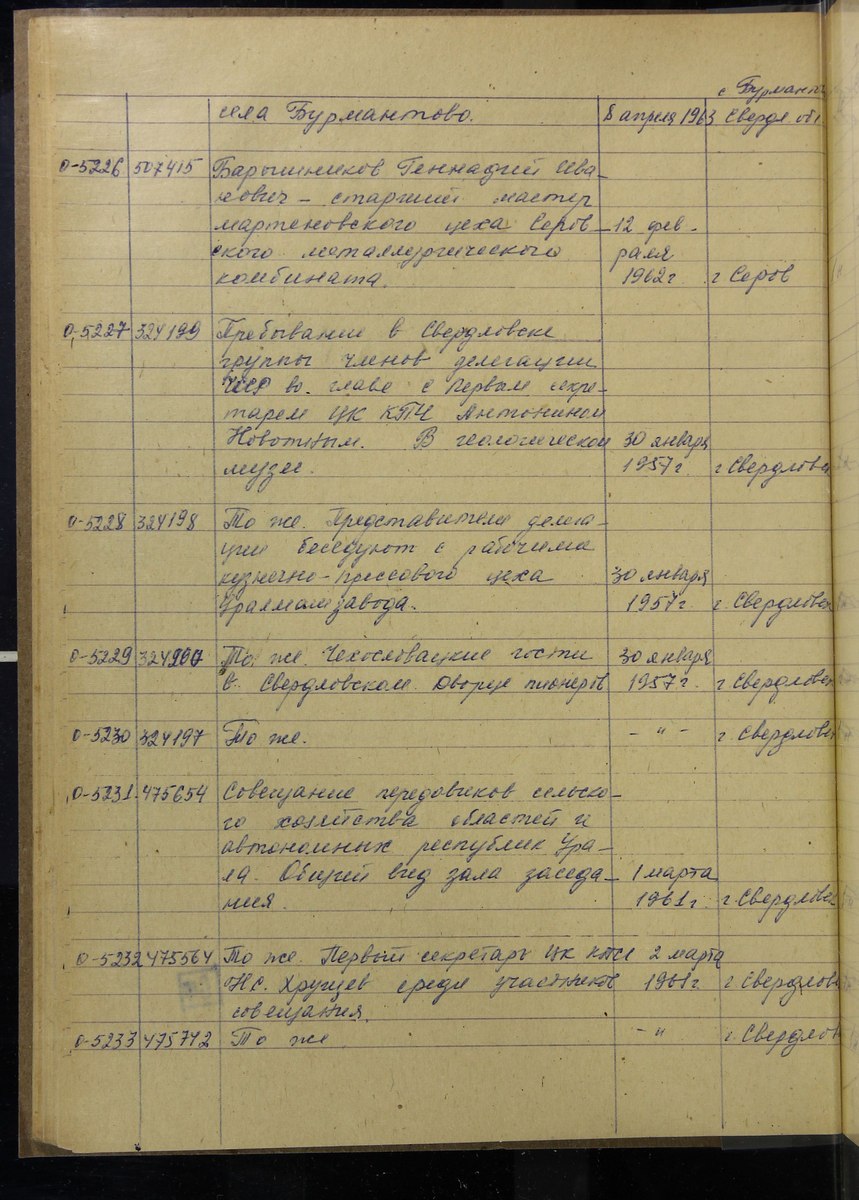 с. Бурмант
села Бурмантово. 8 апреля 1963 Свердл. обл
0-5226 507415 Барышников Геннадий Ива-
нович – старший мастер
мартеновского цеха Серов- 12 фев-
ского металлургического раля
комбината. 1962г г Серов
0-5227 324199 Пребывание в Свердловске
группы членов делегации
ЧССР во главе с первым секре-
тарем ЦК КПЧ Антонином
Новотным. В геологическом 30 января
музее. 1957г. г Свердловск
0-5228 324198 То же. Представители делега-
ции беседуют с рабочими
кузнечно-прессового цеха 30 января
Уралмашзавода. 1957г. г. Свердловск
0-5229 324200 То же. Чехословацкие гости 30 января
в Свердловском Дворце пионеров 1957г. г Свердловск
0-5230 324197 То же. - " - г Свердловск
0-5231 475654 Совещание передовиков сельско-
го хозяйства областей и
автономных республик Ура-
ла. Общий вид зала заседа- 1 марта
ния. 1961г. г Свердловск
0-5232 475564 То же. Первый секретарь ЦК КПСС 2 марта
Н.С. Хрущев среди участников 1961г. г Свердлов
совещания.
0-5233 475742 То же. - " г. Свердлов